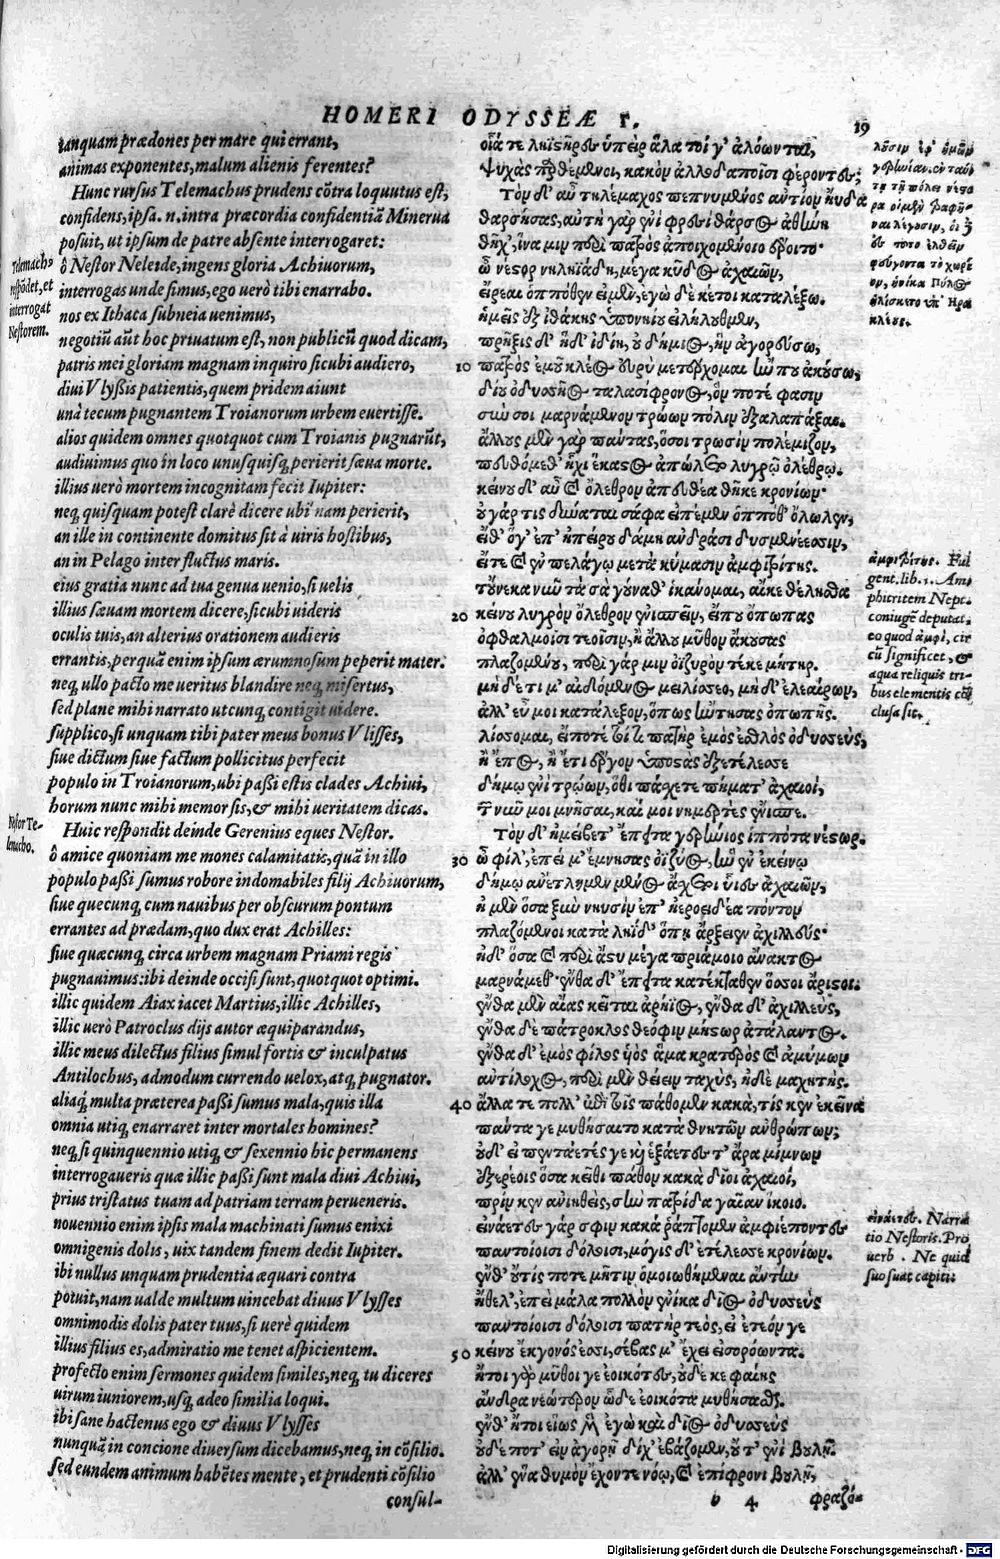 HOMERI ODYSSEAE Γ.
19
tanquam prædones per mare qui errant,
animas exponentes, malum alienis ferentes?
Hunc rursus Telemachus prudens cõtra loquutus est,
confidens, ipsa .n. intra præcordia confidentiã Minerua
posuit, ut ipsum de patre absente interrogaret:
ô Nestor Neleide, ingens gloria Achiuorum,
interrogas unde simus, ego uerò tibi enarrabo.
nos ex Ithaca subneia uenimus,
negotiũ aũt hoc priuatum est, non publicũ quod dicam,
patris mei gloriam magnam inquiro sicubi audiero,
diui Vlyssis patientis, quem pridem aiunt
unà tecum pugnantem Troianorum urbem euertisse.
alios quidem omnes quotquot cum Troianis pugnarũt,
audiuimus quo in loco unusquisq; perierit sæua morte.
illius uerò mortem incognitam fecit Iupiter:
neq; quisquam potest clarè dicere ubi nam perierit,
an ille in continente domitus sit à uiris hostibus,
an in Pelago inter fluctus maris.
eius gratia nunc ad tua genua uenio, si uelis
illius sæuam mortem dicere, sicubi uideris
oculis tuis, an alterius orationem audieris
errantis, perquã enim ipsum ærumnosum peperit mater.
neq; ullo pacto me ueritus blandire neq; misertus,
sed plane mihi narrato utcunq; contigit uidere.
supplico, si unquam tibi pater meus bonus Vlisses,
siue dictum siue factum pollicitus perfecit
populo in Troianorum, ubi passi estis clades Achiui,
horum nunc mihi memor sis, & mihi ueritatem dicas.
Huic respondit deinde Gerenius eques Nestor.
ô amice quoniam me mones calamitatis, quã in illo
populo passi sumus robore indomabiles filij Achiuorum,
siue quecunq; cum nauibus per obscurum pontum
errantes ad prædam, quo dux erat Achilles:
siue quæcunq; circa urbem magnam Priami regis
pugnauimus: ibi deinde occisi sunt, quotquot optimi.
illic quidem Aiax iacet Martius, illic Achilles,
illic uerò Patroclus dijs autor æquiparandus,
illic meus dilectus filius simul fortis & inculpatus
Antilochus, admodum currendo uelox, atq; pugnator.
aliaq; multa præterea passi sumus mala, quis illa
omnia utiq; enarraret inter mortales homines?
neq; si quinquennio utiq; & sexennio hic permanens
interrogaueris quæ illic passi sunt mala diui Achiui,
prius tristatus tuam ad patriam terram perueneris.
nouennio enim ipsis mala machinati sumus enixi
omnigenis dolis, uix tandem finem dedit Iupiter.
ibi nullus unquam prudentia æquari contra
potuit, nam ualde multum uincebat diuus Vlysses
omnimodis dolis pater tuus, si uerè quidem
illius filius es, admiratio me tenet aspicientem.
profecto enim sermones quidem similes, neq; tu diceres
uirum iuniorem, usq; adeo similia loqui.
ibi sane hactenus ego & diuus Vlysses
nunquã in concione diuersum dicebamus, neq; in cõsilio.
sed eundem animum habẽtes mente, et prudenti cõsilio
consul-
Telemach9
respõdet, et
interrogat
Nestorem.
Nestor Te-
lemacho.
οἷά τε ληϊστῆρες ὑπεὶρ ἅλα τοί γ' ἀλόωνται,
ψυχὰς παρθέμενοι, κακὸν ἀλλοδαποῖσι φέροντες;
Τὸν δ' αὖ τηλέμαχος πεπνυμένος ἀντίον ηὔδα
θαρσήσας, αὐτὴ γὰρ ἐνὶ φρεσὶ θάρσος ἀθήνη
θῆχ', ἵνα μιν περὶ πατρὸς ἀποιχομένοιο ἔροιτο·
ὦ νέστορ νηληϊάδη, μέγα κῦδος ἀχαιῶν,
εἴρεαι ὁππόθεν εἰμὲν, ἐγὼ δὲ κέ τοι καταλέξω.
ἡμεῖς ἐξ ἰθάκης ὑπονηίου εἰλήλουθμεν,
πρῆξις δ' ἥδ' ἰδίη, οὐ δήμιος, ἣν ἀγορεύσω,
10 πατρὸς ἐμοῦ κλέος εὐρὺ μετέρχομαι ἤν που ἀκούσω,
δίου ὀδυσσῆος ταλασίφρονος, ὅν ποτέ φασιν
σὺν σοὶ μαρνάμενον τρώων πόλιν ἐξαλαπάξαι.
ἄλλους μὲν γὰρ πάντας, ὅσοι τρωσὶν πολέμιζον,
πευθόμεθ' ἧχι ἕκαστος ἀπώλετο λυγρῷ ὀλέθρῳ.
κείνου δ' αὖ καὶ ὄλεθρον ἀπευθέα θῆκε κρονίων·
οὐ γάρ τις δύναται σάφα εἰπέμεν ὁππόθ' ὄλωλεν,
εἴθ' ὅγ' ἐπ' ἠπείρου δάμη ἀνδράσι δυσμενέεσσιν,
εἴτε καὶ ἐν πελάγῳ μετὰ κύμασιν ἀμφιτρίτης.
τοὔνεκα νῦν τὰ σὰ γούναθ' ἱκάνομαι, αἴκε θέλῃσθα
20 κείνου λυγρὸν ὄλεθρον ἐνισπεῖν, εἴ που ὄπωπας
ὀφθαλμοῖσι τεοῖσιν, ἢ ἄλλου μῦθον ἄκουσας
πλαζομένου, περὶ γάρ μιν ὀϊζυρὸν τέκε μήτηρ.
μὴ δέ τι μ' αἰδόμενος μειλίσσεο, μὴ δ' ἐλεαίρων,
ἀλλ' εὖ μοι κατάλεξον, ὅπως ἤντησας ὀπωπῆς.
λίσσομαι, εἴποτέ τοί τι πατὴρ ἐμὸς ἐσθλὸς ὀδυσσεὺς,
ἢ ἔπος, ἠέ τι ἔργον ὑποστὰς ἐξετέλεσσε
δήμῳ ἐνὶ τρώων, ὅθι πάσχετε πήματ' ἀχαιοί,
τῶν νῦν μοι μνῆσαι, καί μοι νημερτὲς ἔνισπε.
Τὸν δ' ἠμείβετ' ἔπειτα γερήνιος ἱππότα νέστωρ.
30 ὦ φίλ', ἐπεί μ' ἔμνησας ὀϊζύος, ἣν ἐν ἐκείνῳ
δήμῳ ἀνέτλημεν μένος ἄσχετοι υἷες ἀχαιῶν,
ἠ μὲν ὅσα ξὺν νηυσὶν ἐπ' ἠεροειδέα πόντον
πλαζόμενοι κατὰ ληίδ' ὅπῃ ἄρξειεν ἀχιλλεύς·
ἠδ' ὅσα καὶ περὶ ἄστυ μέγα πριάμοιο ἄνακτος
μαρνάμεθ'· ἔνθα δ' ἔπειτα κατέκταθεν ὅσσοι ἄριστοι.
ἔνθα μὲν αἴας κεῖται ἀρήϊος, ἔνθα δ' ἀχιλλεύς,
ἔνθα δὲ πάτροκλος θεόφιν μήστωρ ἀτάλαντος.
ἔνθα δ' ἐμὸς φίλος υἱὸς ἅμα κρατερὸς καὶ ἀμύμων
ἀντίλοχος, περὶ μὲν θείειν ταχὺς, ἠδὲ μαχητής.
40 ἄλλα τε πόλλ' ἐπὶ τοῖς πάθομεν κακὰ, τίς κεν ἐκεῖνα
πάντα γε μυθήσαιτο κατὰ θνητῶν ἀνθρώπων;
οὐδ' εἰ πεντάετές γε καὶ ἑξάετες γ' ἄρα μίμνων
ἐξερέοις ὅσα κεῖθι πάθον κακὰ δῖοι ἀχαιοί,
πρίν κεν ἀνιηθεὶς, σὴν πατρίδα γαῖαν ἵκοιο.
εἰνάετες γάρ σφιν κακὰ ῥάπτομεν ἀμφιέποντες
παντοίοισι δόλοισι, μόγις δ' ἐτέλεσσε κρονίων.
ἔνθ' οὔτις ποτε μῆτιν ὁμοιωθήμεναι ἄντην
ἤθελ', ἐπεὶ μάλα πολλὸν ἐνίκα δῖος ὀδυσσεὺς
παντοίοισι δόλοισι πατὴρ τεός, εἰ ἐτεόν γε
50 κείνου ἔκγονός ἐσσι, σέβας μ' ἔχει εἰσορόωντα.
ἤτοι γὰρ μῦθοί γε ἐοικότες, οὐδέ κε φαίης
ἄνδρα νεώτερον ὧδε ἐοικότα μυθήσασθαι.
ἔνθ' ἤτοι εἵως μὲν ἐγὼ καὶ δῖος ὀδυσσεὺς
οὐδέ ποτ' εἰν ἀγορῇ δίχ' ἐβάζομεν, οὔτ' ἐνὶ βουλῇ.
ἀλλ' ἕνα θυμὸν ἔχοντε νόῳ, καὶ ἐπίφρονι βουλῇ,
b 4
φραζό-
ἀμφιτρίτης. Ful
gent. lib. 1. Am
phitritem Nept.
coniugẽ deputat,
eo quod ἀμφὶ, cir
cũ significet, &
aqua reliquis tri-
bus elementis cõ
clusa sit.
εἰνάετες. Narra
tio Nestoris. Pro
uerb. Ne quid
suo suat capiti: